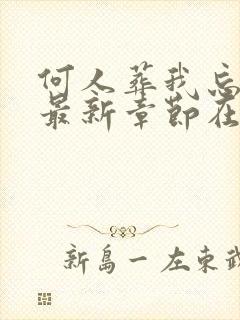 何人葬我忘
最新章节在
新岛一左东武